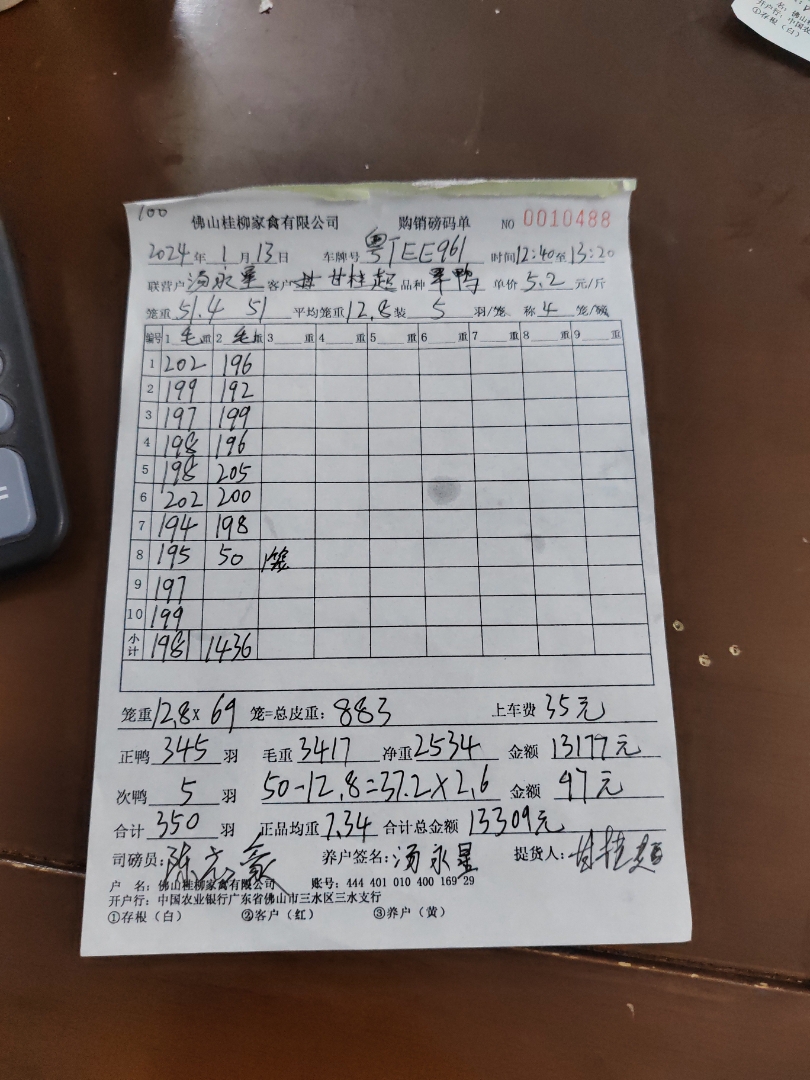 100
佛山桂柳家禽有限公司 购销磅码单 NO 0010488
2024年 1月 13日 车牌号 粤TEE961 时间 12:40至13:20
联营户 汤永星 客户 甘桂超 品种 单价 5.2 元/斤
笼重 51.4 51 平均笼重 12.8 装 5 羽/笼、称 4 笼/磅
编号 1 毛重 2 毛重 3 重 4 重 5 重 6 重 7 重 8 重 9 重
1 202 196
2 199 192
3 197 199
4 198 196
5 198 205
6 202 200
7 194 198
8 195 50 1笼
9 197
10 199
小计 1981 1436
笼重 12.8 x 69 笼=总皮重: 883 上车费 35元
正鸭 345 羽 毛重 3417 净重 2534 金额 13177元
次鸭 5 羽 50-12.8=37.2×2.6 金额 97元
合计 350 羽 正品均重 7.34 合计总金额 13309元
司磅员: 养户签名: 汤永星 提货人: 甘桂超
户 名: 佛山桂柳家禽有限公司 账号: 444 401 010 400 169 29
开户行: 中国农业银行广东省佛山市三水区三水支行
①存根（白） ②客户（红） ③养户（黄）
①存根（白）